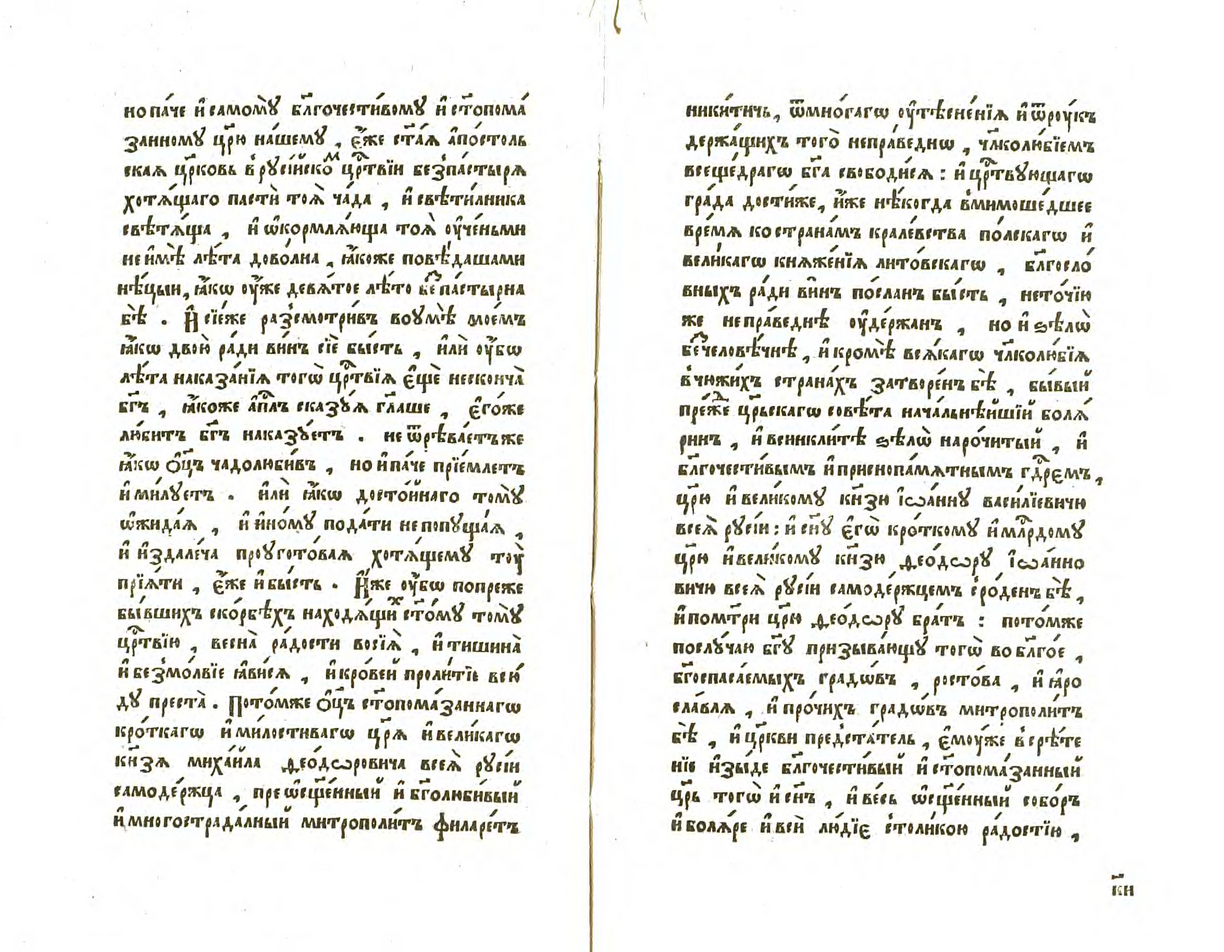 но па́че и҆ самомꙋ̀ бл҃гочести́вомꙋ и҆ ст҃опома́
занномꙋ цр҃ю на́шемꙋ , є҆́же ст҃а́ѧ а҆по́столь
скаѧ цр҃ковь в рꙋсі́искоⷨ цр҇твїи без̾ па́стырѧ
хотѧ́щаго пасти̇̀ тоѧ̀ ча́да , и҆ свѣти́лника
свѣтѧ́ща , и҆ ѡ҆кормлѧ́юща тоѧ̀ оу҆че́ньми
не и҆мѣ̀ лѣ́та дово́лна , ꙗ҆́коже повѣ́даша ми
нѣ́цыи, ꙗ҆́кѡ оу҆́же девѧ́тое лѣ́то беⷥ па́стырѧ
бѣ̀ . И҆ сїе́же раз̾смотри́въ во оу҆мѣ̀ мое́мъ
ꙗ҆́кѡ двою̀ ра́ди ви́нъ сїѐ бы́сть , и҆лѝ оу҆́бѡ
лѣ́та наказа́нїѧ тогѡ̀ цр҇твїѧ є҆щѐ не сконча̀
бг҃ъ , ꙗ҆́коже а҆пⷭ҇лъ сказꙋ́ѧ гл҃аше , є҆го́же
лю́битъ бг҃ъ наказꙋ́етъ . не ѿрѣва́етъ же
ꙗ҆́кѡ ѻ҆ц҃ъ чадолюби́въ , но и҆ па́че прїе́млетъ
и҆ ми́лꙋетъ . и҆лѝ ꙗ҆́кѡ досто́йнаго томꙋ̀
ѡ҆жида́ѧ , и҆ и҆но́мꙋ пода́ти не попꙋща́ѧ ,
и҆ и҆здале́ча проꙋгото́ваѧ хотѧ́щемꙋ тоу̀
прїѧ́ти , є҆́же и҆ бы́сть . И҆́же оу҆́бѡ попре́же
бы́вших̾ ско́рбѣхъ находѧ́щиⷯ ст҃о́мꙋ томꙋ̀
цр҇твїю , весна̀ ра́дости восїѧ̀ , и҆ тишина̀
и҆ безмо́лвїе ꙗ҆ви́сѧ , и҆ кро́вей проли́тїе всю́
дꙋ преста̀ . Пото́мже ѻ҆ц҃ъ ст҃опома́заннагѡ
кро́ткагѡ и҆ ми́лостивагѡ цр҃ѧ и҆ вели́кагѡ
кн҃зѧ миха́ила ѳео́дѡровича всеѧ̀ рꙋсі́и
самоде́ржца , преѡ҆сщ҃е́нный и҆ бг҃олюби́вый
и҆ многострада́лный митрополи́тъ филаре́тъ
ники́тичь, ѿ мно́гагѡ оу҆тѣсне́нїѧ и҆ ѿ роу́къ
держа́щихъ того̀ непра́веднѡ , чл҃колю́бїемъ
всеще́драгѡ бг҃а свободи́сѧ : и҆ цр҇твꙋющагѡ
гра́да дости́же, и҆́же нѣ́когда в мимоше́дшее
вре́мѧ ко страна́мъ кралевства по́лскагѡ и҆
вели́кагѡ кнѧже́нїѧ лито́вскагѡ , бл҃госло́
вныхъ ра́ди ви́нъ по́сланъ бы́сть , не то́чїю
же непра́веднѣ оу҆де́ржанъ , но и҆ ѕѣлѡ̀
беⷥчеловѣ́чнѣ, и҆ кромѣ̀ всѧ́кагѡ чл҃колю́бїѧ
в чюжи́хъ страна́хъ затворе́нъ бѣ̀ , бы́вый
пре́ⷤе цр҃ьскагѡ совѣ́та нача́льнѣйшїй болѧ́
ринъ , и҆ в синкли́тѣ ѕѣлѡ̀ наро́читый , и҆
бл҃гочести́вымъ и҆ приснопа́мѧтнымъ гдⷭ҇ремъ,
цр҃ю и҆ вели́комꙋ кн҃зю і҆ѡа́ннꙋ васи́лїевичю
всеѧ̀ рꙋсі́и : и҆ сн҃ꙋ є҆гѡ̀ кро́ткомꙋ и҆ млⷭ҇рдомꙋ
цр҃ю и҆ вели́комꙋ кн҃зю ѳео́дѡрꙋ і҆ѡа́нно
вичю всеѧ̀ рꙋсі́и самоде́ржцемъ сро́денъ бѣ̀ ,
и҆ по мт҃ри цр҃ю ѳео́дѡрꙋ бра́тъ : пото́мже
по слꙋ́чаю бг҃ꙋ призыва́ющꙋ тогѡ̀ во бл҃го́е ,
бг҃оспаса́емыхъ градѡ́въ , росто́ва , и҆ ꙗ҆ро
сла́влѧ , и҆ про́чихъ градѡ́въ митрополи́тъ
бѣ̀ , и҆ цр҃кви предста́тель , є҆моу́же в срѣ́те
нїе и҆зы́де бл҃гочести́вый и҆ ст҃опома́занный
цр҃ь тогѡ̀ и҆ сн҃ъ , и҆ ве́сь ѡ҆сщ҃е́нный собо́ръ
и҆ болѧ́ре и҆ всѝ лю́дїе с толи́кою ра́достїю ,
к҃и